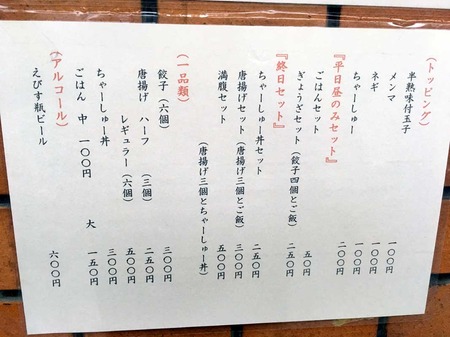 (トッピング)
半熟味付玉子 一〇〇円
メンマ 一〇〇円
ネギ 一〇〇円
ちゃーしゅー 二〇〇円
『平日昼のみセット』
ごはんセット 五〇円
ぎょうざセット(餃子四個とご飯) 二五〇円
『終日セット』
ちゃーしゅー丼セット 二五〇円
唐揚げセット(唐揚げ三個とご飯) 三〇〇円
満腹セット 五〇〇円
(唐揚げ三個とちゃーしゅー丼)
(一品類)
餃子(六個) 三〇〇円
唐揚げ ハーフ (三個) 二五〇円
レギュラー (六個) 五〇〇円
ちゃーしゅー丼 三〇〇円
ごはん 中 一〇〇円 大 一五〇円
(アルコール)
えびす瓶ビール 六〇〇円